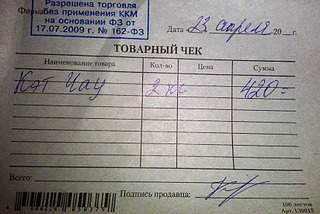 Разрешена торговля
без применения ККМ
на основании ФЗ от
17.07.2009 г. № 162-ФЗ
Фирма
Дата 23 апреля 20 г.
ТОВАРНЫЙ ЧЕК
Наименование товара Кол-во Цена Сумма
Кэт Чау 2 кг 420=
Всего:
Подпись продавца:
100 листов
Арт. 130018